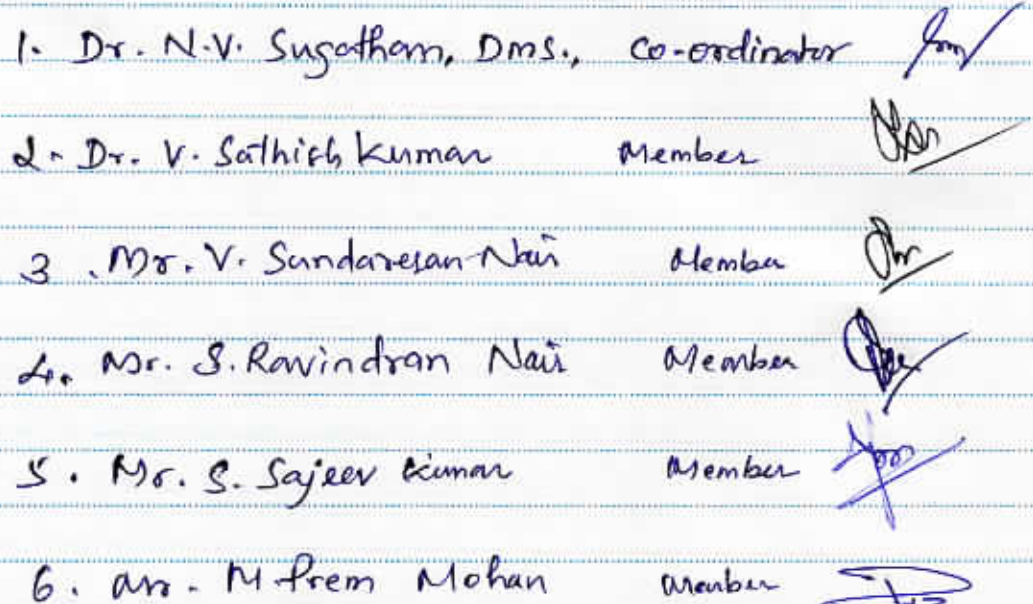 1. Dr. N.V. Sugatham, Dms., Co-ordinator
2. Dr. V. Sathish Kumar Member
3. Mr. V. Sundaresan Nair Member
4. Mr. S. Ravindran Nair Member
5. Mr. S. Sajeev Kumar Member
6. Mr. M Prem Mohan Member